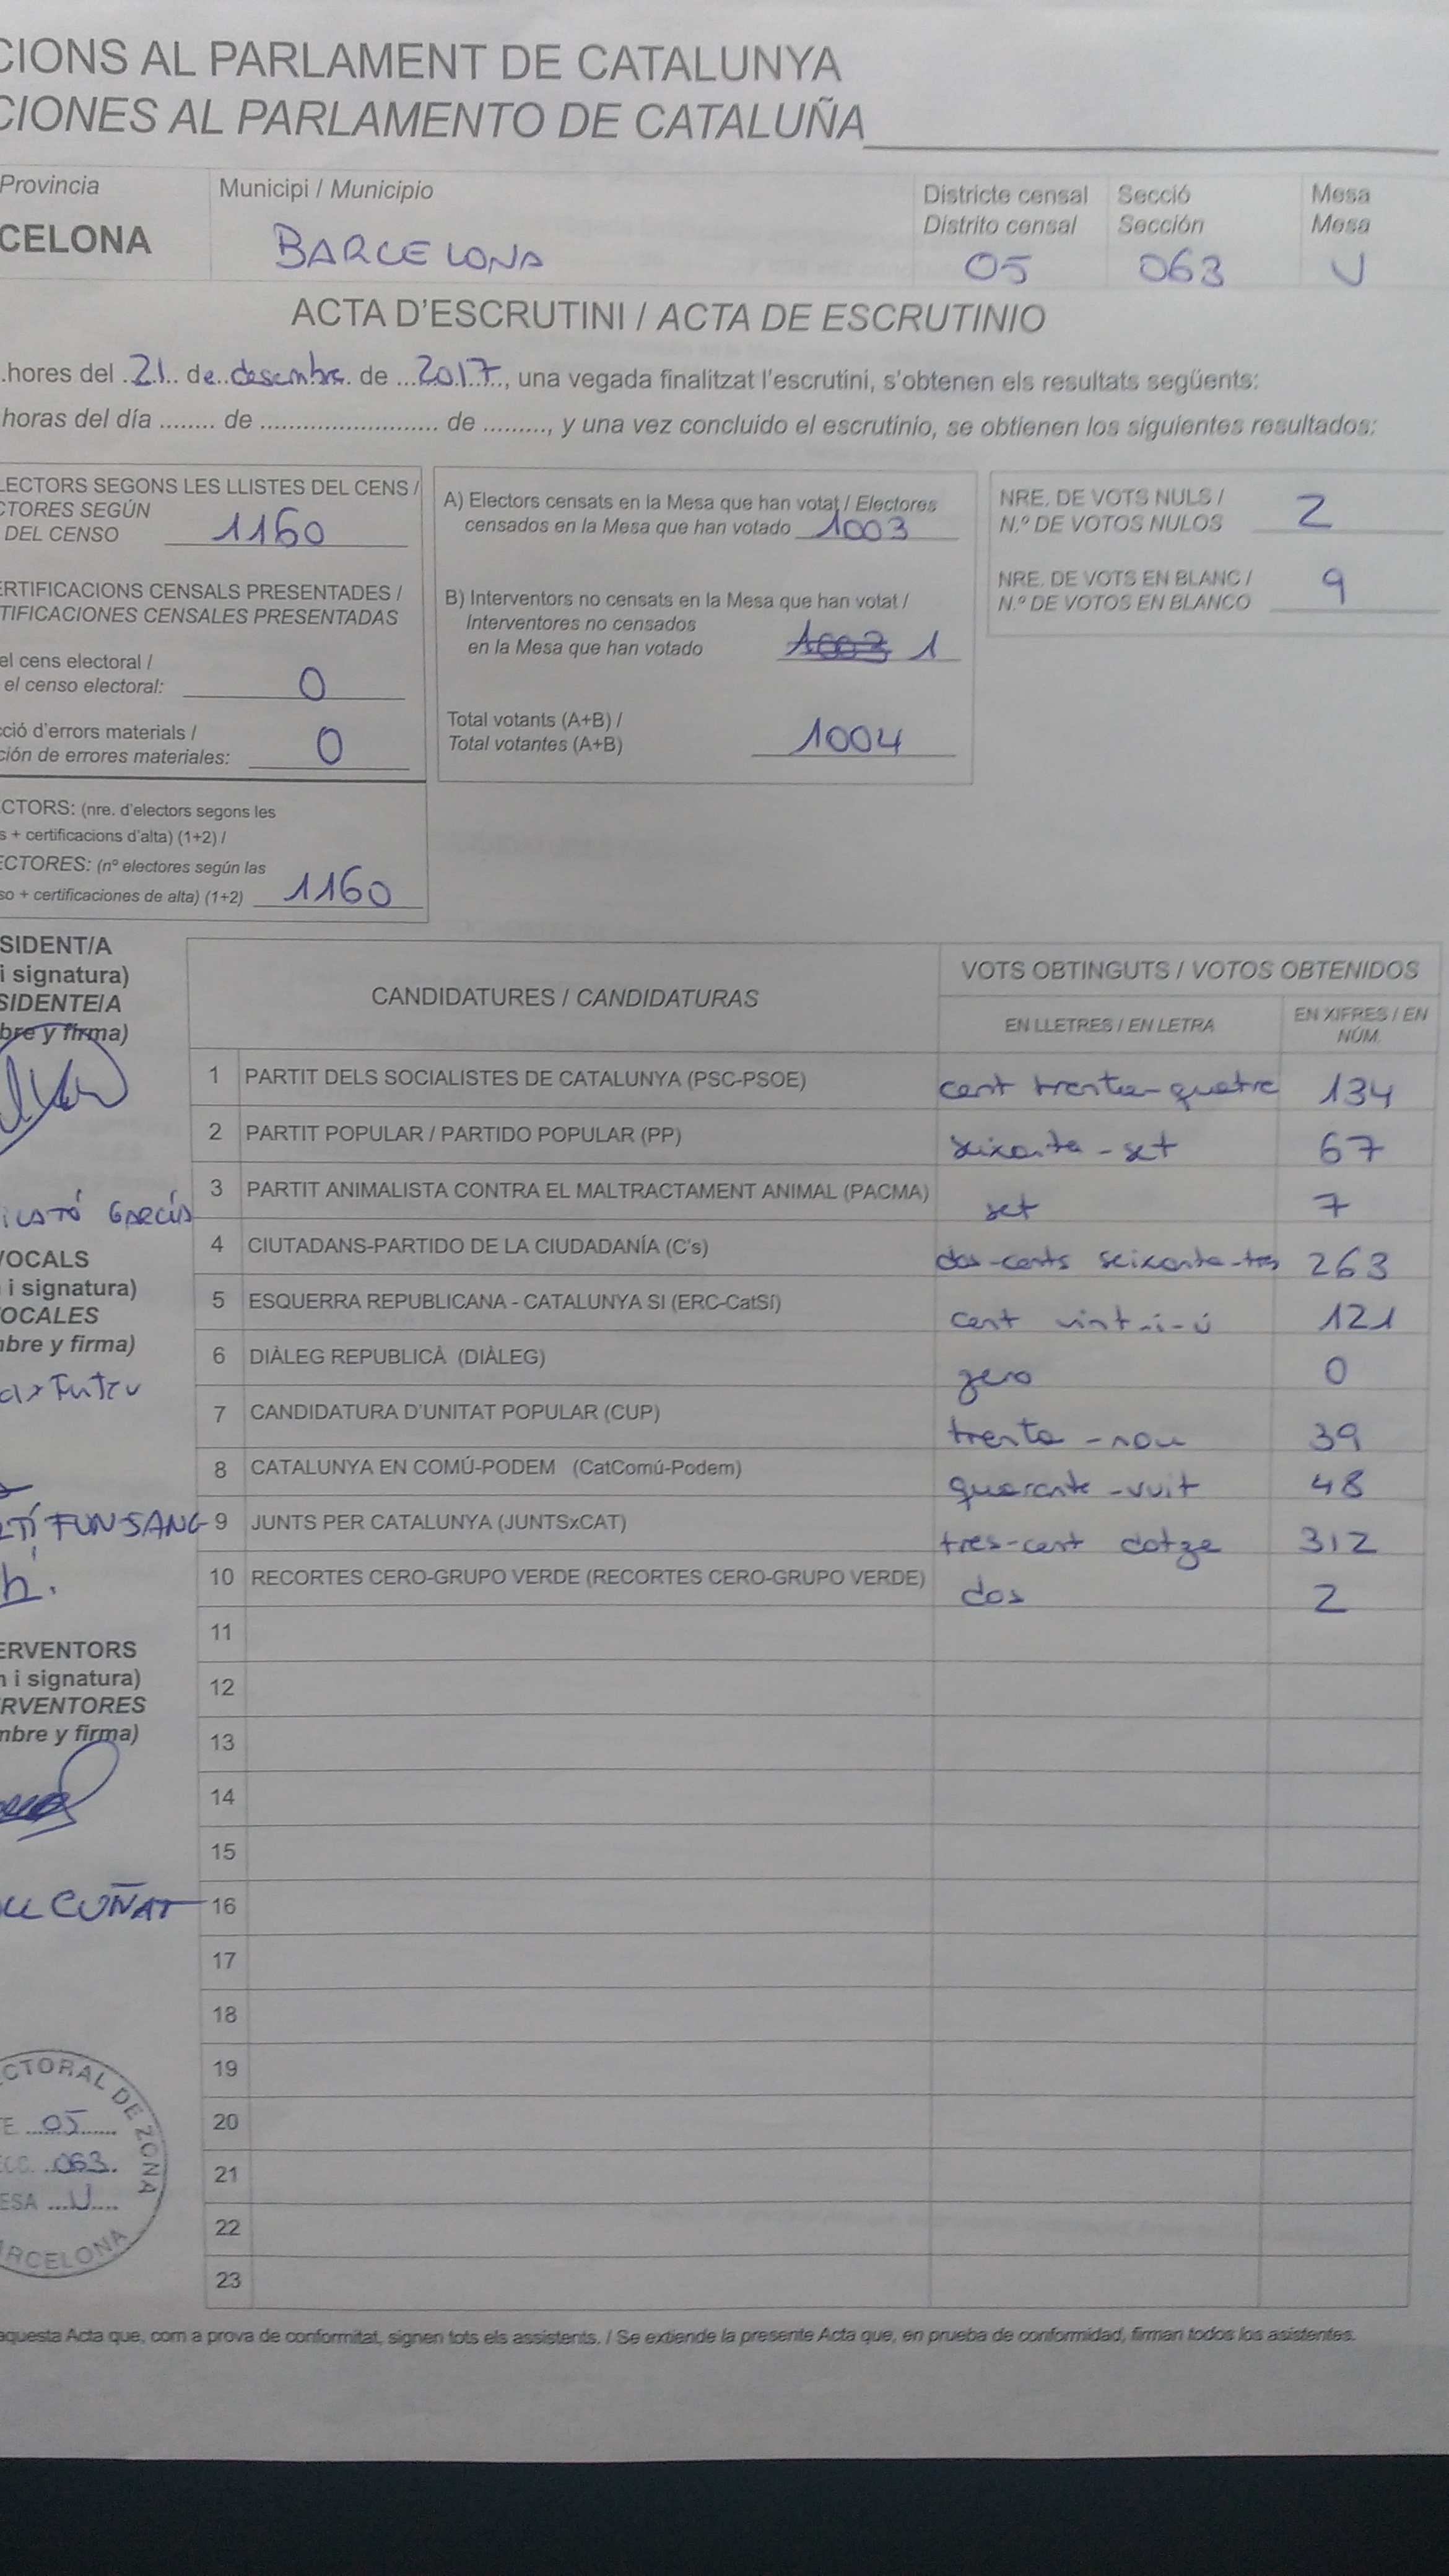 CIONS AL PARLAMENT DE CATALUNYA
CIONES AL PARLAMENTO DE CATALUÑA
Provincia
CELONA
Municipi / Municipio
BARCELONA
Districte censal
Distrito censal
05
Secció
Sección
063
Mesa
Mesa
U
ACTA D'ESCRUTINI / ACTA DE ESCRUTINIO
.hores del .21.. de..desembre. de ...2017..., una vegada finalitzat l'escrutini, s'obtenen els resultats següents:
horas del día ........ de ......................... de ........., y una vez concluido el escrutinio, se obtienen los siguientes resultados:
LECTORS SEGONS LES LLISTES DEL CENS /
CTORES SEGÚN
DEL CENSO 1160
ERTIFICACIONS CENSALS PRESENTADES /
TIFICACIONES CENSALES PRESENTADAS
el cens electoral /
el censo electoral: 0
cció d'errors materials /
ción de errores materiales: 0
ECTORS: (nre. d'electors segons les
s + certificacions d'alta) (1+2) /
ECTORES: (nº electores según las
so + certificaciones de alta) (1+2) 1160
A) Electors censats en la Mesa que han votat / Electores
censados en la Mesa que han votado 1003
B) Interventors no censats en la Mesa que han votat /
Interventores no censados
en la Mesa que han votado 1003 1
Total votants (A+B) /
Total votantes (A+B) 1004
NRE. DE VOTS NULS /
N.º DE VOTOS NULOS 2
NRE. DE VOTS EN BLANC /
N.º DE VOTOS EN BLANCO 9
SIDENT/A
i signatura)
SIDENTE/A
bre y firma)
GARCÍA
VOCALS
i signatura)
OCALES
mbre y firma)
FUNSANG
ERVENTORS
n i signatura)
RVENTORES
mbre y firma)
CUÑAT
CANDIDATURES / CANDIDATURAS
VOTS OBTINGUTS / VOTOS OBTENIDOS
EN LLETRES / EN LETRA
EN XIFRES / EN
NÚM.
1 PARTIT DELS SOCIALISTES DE CATALUNYA (PSC-PSOE) cent trenta-quatre 134
2 PARTIT POPULAR / PARTIDO POPULAR (PP) seixanta-set 67
3 PARTIT ANIMALISTA CONTRA EL MALTRACTAMENT ANIMAL (PACMA) set 7
4 CIUTADANS-PARTIDO DE LA CIUDADANÍA (C's) dos-cents seixanta-tres 263
5 ESQUERRA REPUBLICANA - CATALUNYA SI (ERC-CatSí) cent vint-i-ú 121
6 DIÀLEG REPUBLICÀ (DIÀLEG) zero 0
7 CANDIDATURA D'UNITAT POPULAR (CUP) trenta-nou 39
8 CATALUNYA EN COMÚ-PODEM (CatComú-Podem) quaranta-vuit 48
9 JUNTS PER CATALUNYA (JUNTSxCAT) tres-cent dotze 312
10 RECORTES CERO-GRUPO VERDE (RECORTES CERO-GRUPO VERDE) dos 2
11
12
13
14
15
16
17
18
19
20
21
22
23
CTORAL DE ZONA
TE ...05......
ECC. ..063..
ESA ...U....
RCELONA
aquesta Acta que, com a prova de conformitat, signen tots els assistents. / Se extiende la presente Acta que, en prueba de conformidad, firman todos los asistentes.